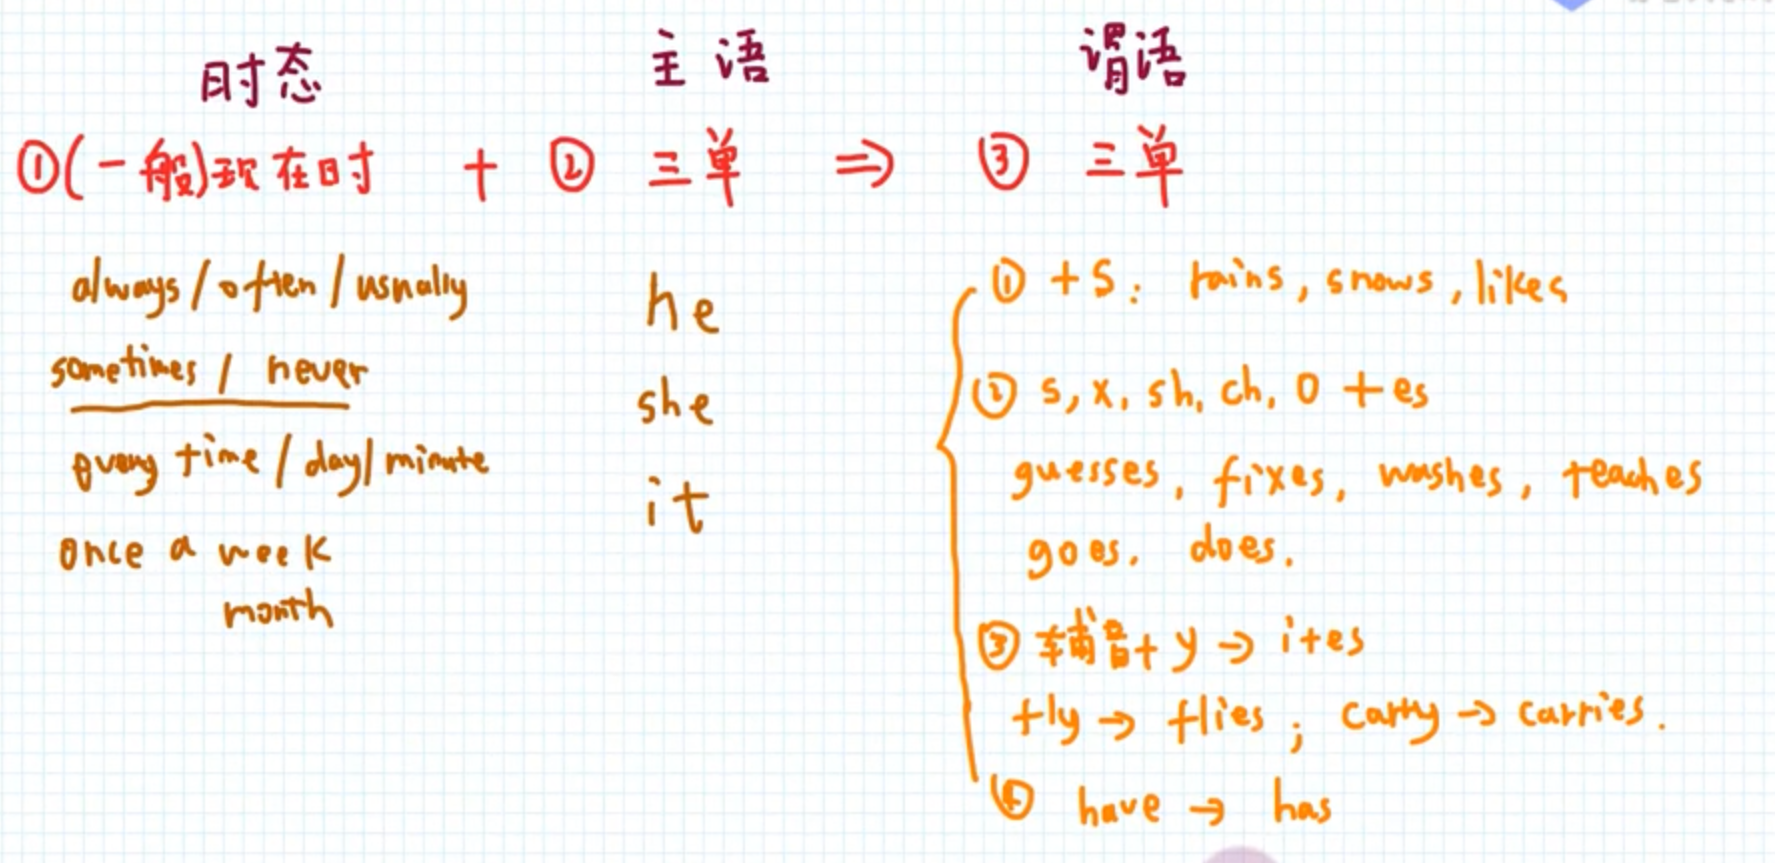 时态 主语 谓语
①(一般)现在时 + ② 三单 ⇒ ③ 三单
always/often/usually
sometimes / never
every time / day/ minute
once a week
month
he
she
it
① +s: rains, snows, likes
② s, x, sh, ch, o + es
guesses, fixes, washes, teaches
goes. does.
③ 辅音+ y → i+es
fly → flies; carry → carries.
④ have → has